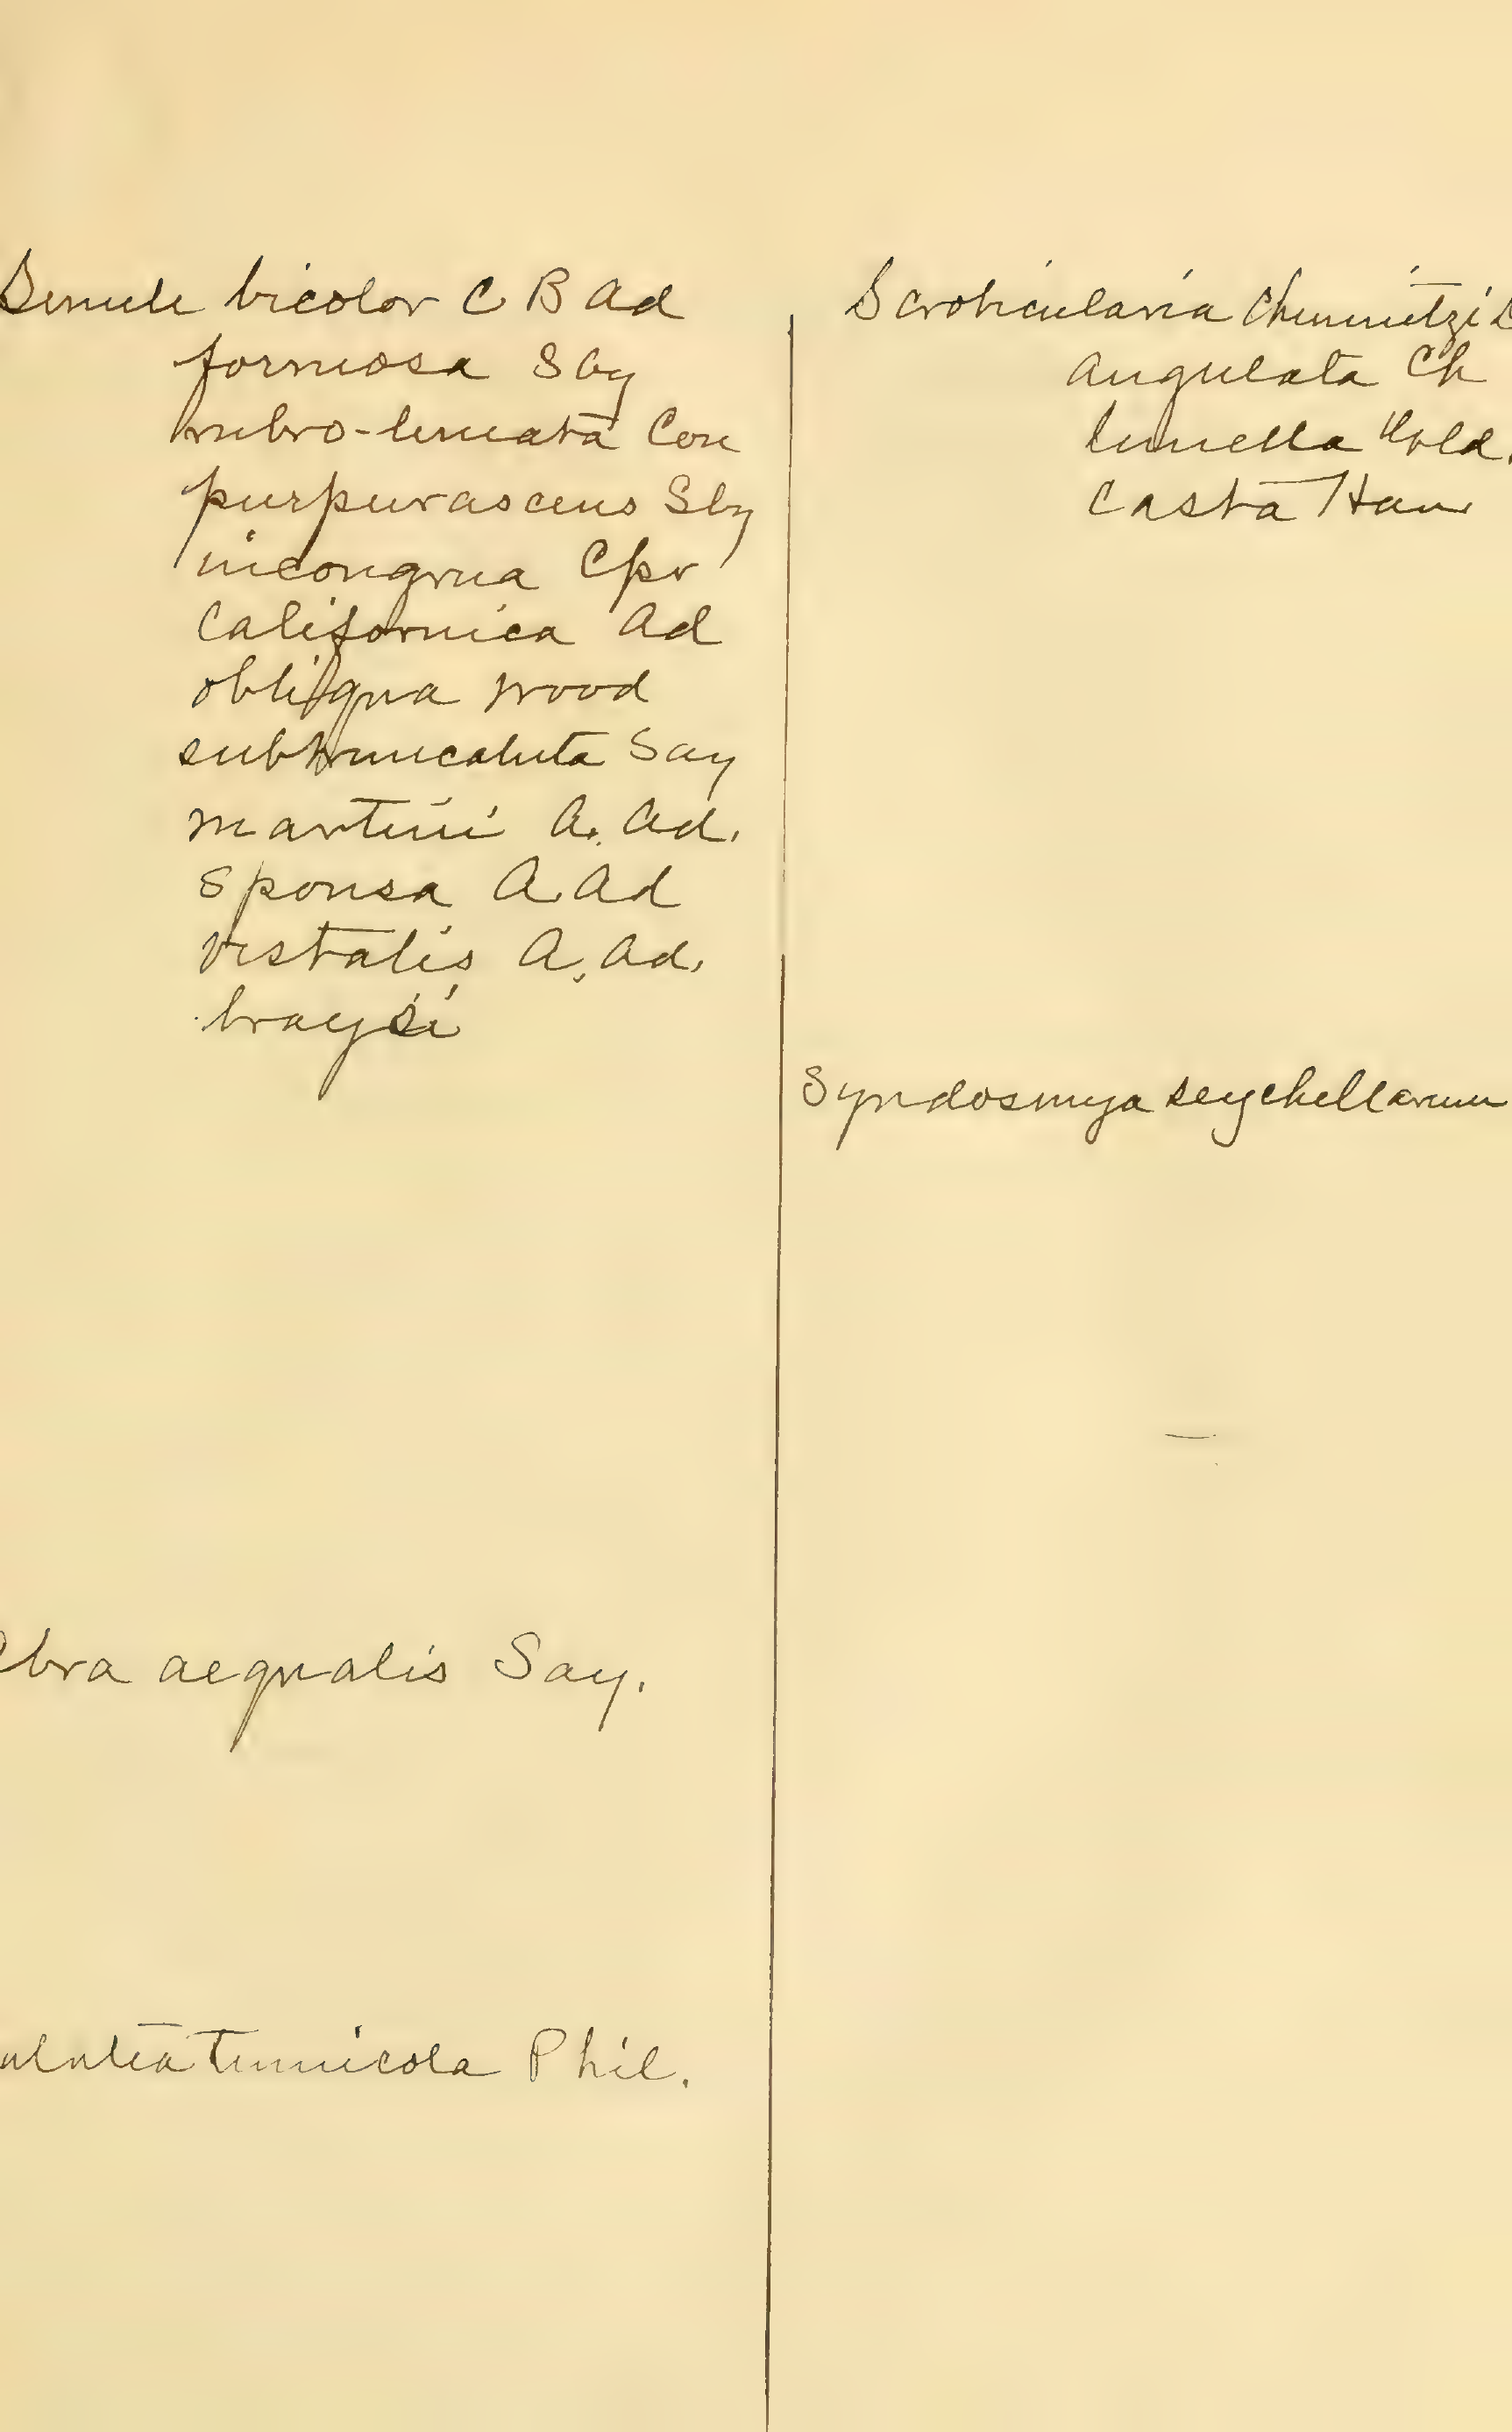 Semele bicolor C B Ad
formosa Sby
rubro-lineata Con
purpurascens Sby
incongrua Cpr
Californica Ad
obliqua Wood
subtruncatuta Say
martinii A. Ad.
Sponsa A. Ad
vestalis A. Ad.
Abra aequalis Say.
Phil.
Scrobicularia Chemnitzi
angulata Ch
Casta Han
Syndosmya seychellarum